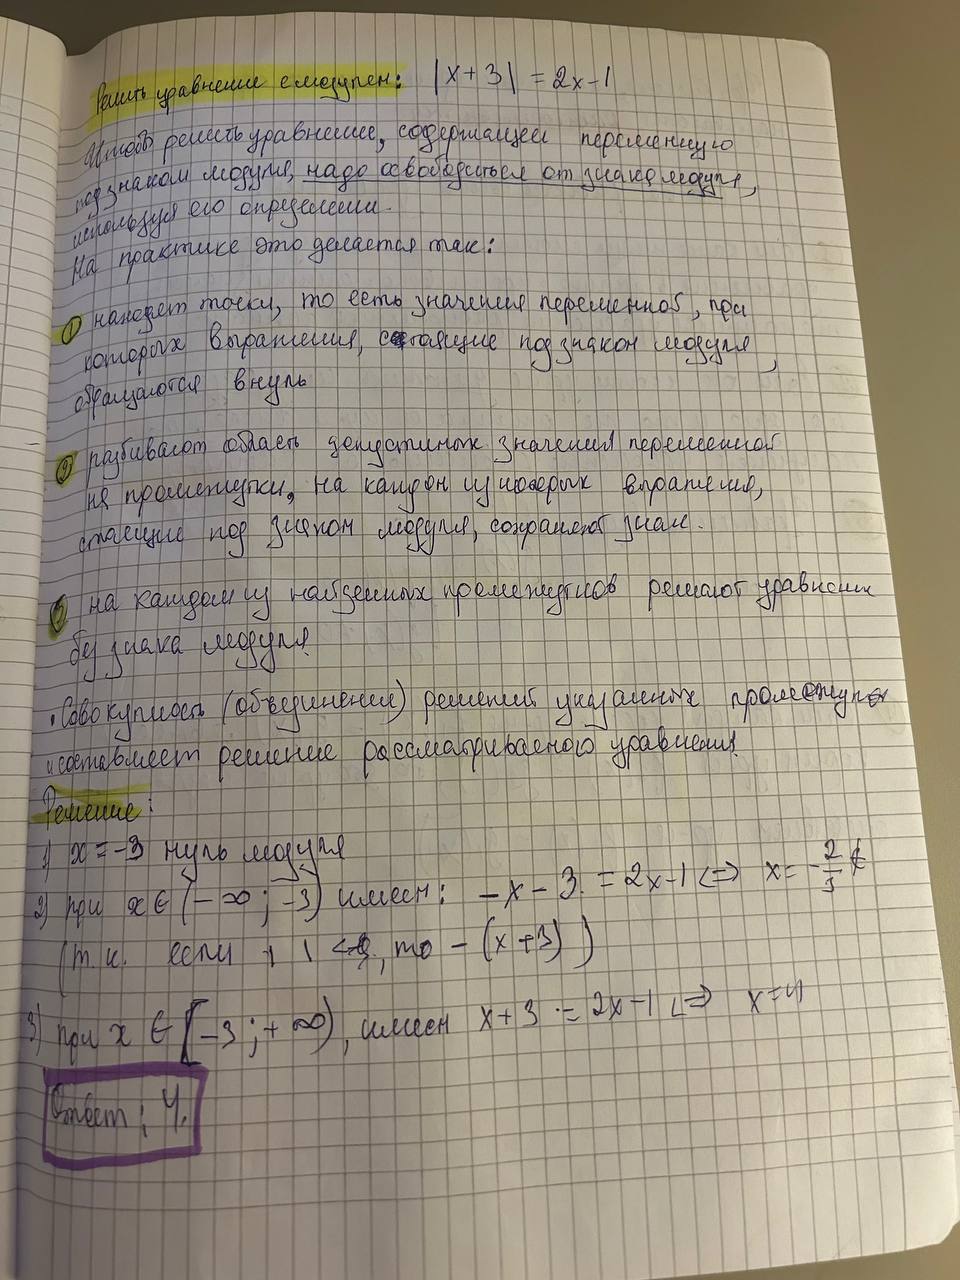 Решить уравнение с модулем: |x+3| = 2x-1
Чтобы решить уравнение, содержащее переменную
под знаком модуля, надо освободиться от знака модуля,
используя его определение.
На практике это делается так:
① находят точки, то есть значения переменной, при
которых выражения, стоящие под знаком модуля,
обращаются в нуль
② разбивают область допустимых значений переменной
на промежутки, на каждом из которых выражения,
стоящие под знаком модуля, сохраняют знак.
③ на каждом из найденных промежутков решают уравнение
без знака модуля.
Совокупность (объединение) решений указанных промежутков
и составляет решение рассматриваемого уравнения.
Решение:
1) x = -3 нуль модуля
2) при x ∈ (-∞; -3) имеем: -x - 3 = 2x-1 <=> x = -2/3 ∉
(т.к. если | | < , то - (x+3))
3) при x ∈ [-3; +∞), имеем x+3 = 2x-1 <=> x=4
Ответ: 4.